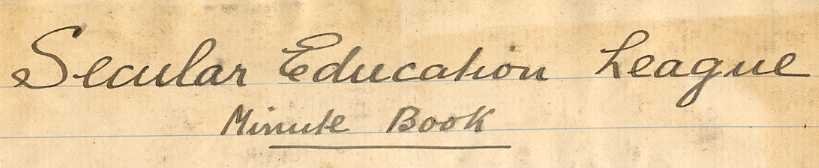 Secular Education League
Minute Book